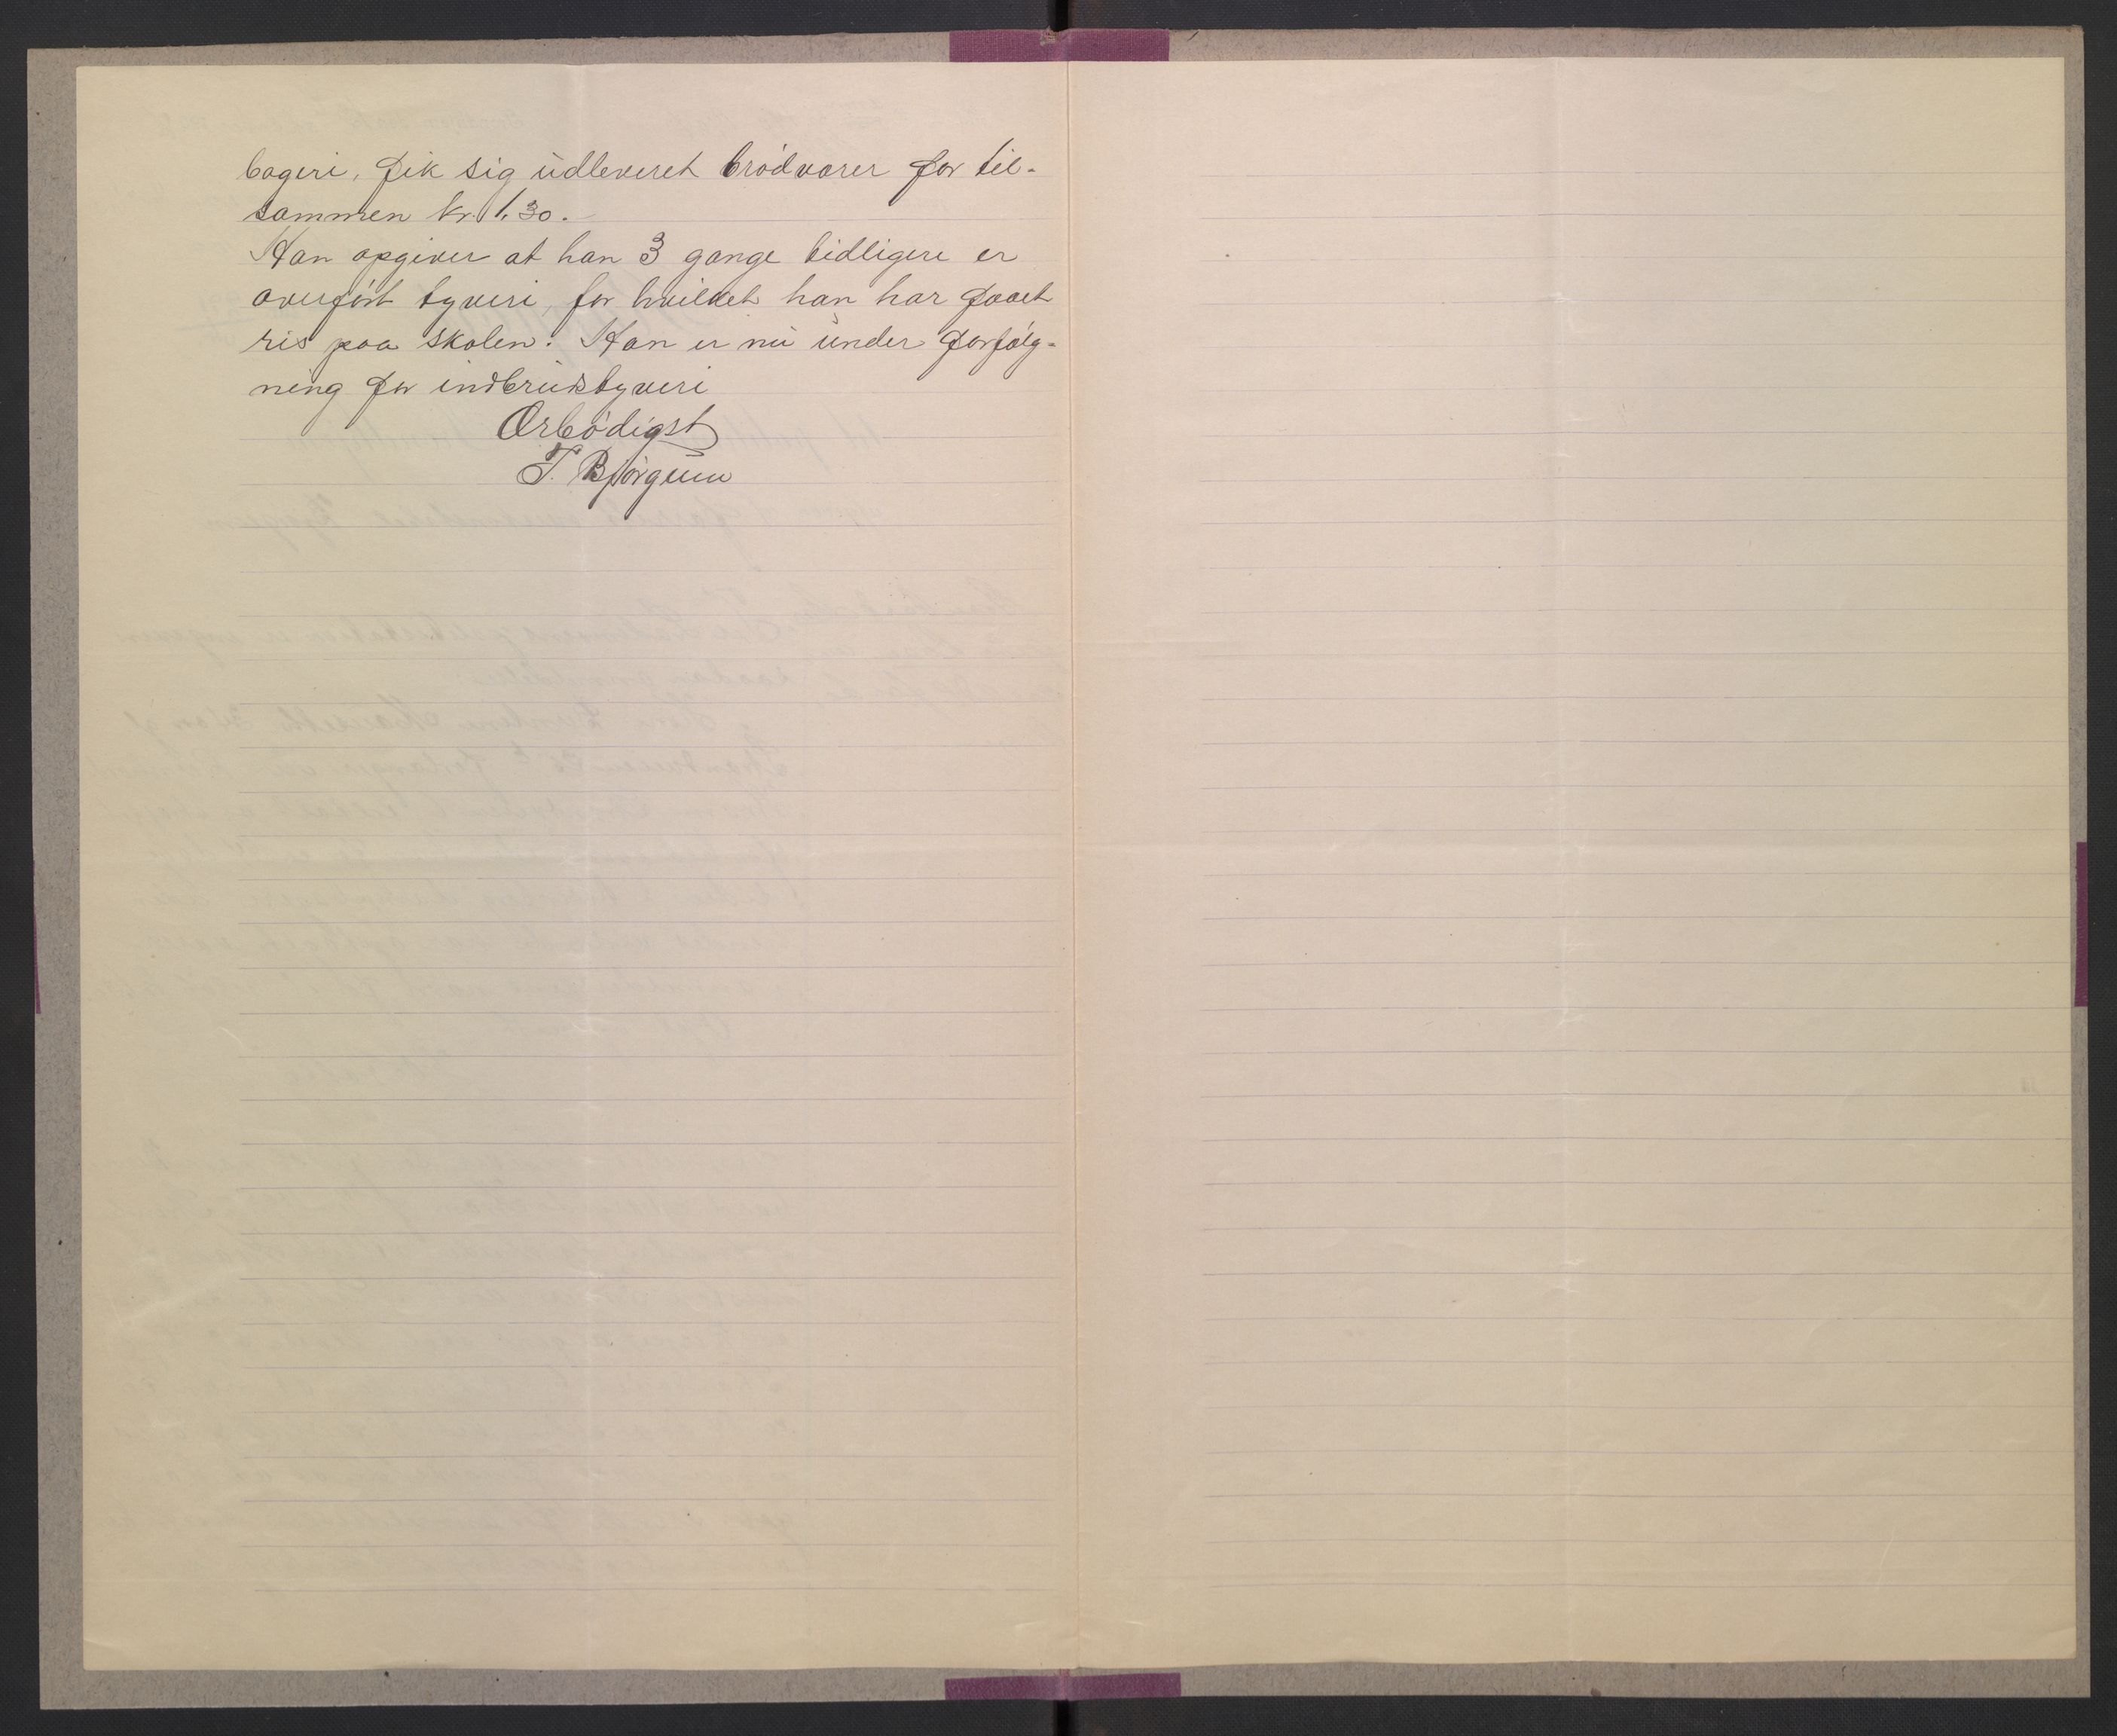 bageri, fik sig udleveret brödvarer for til-
sammen kr. 1,30.
Han opgiver at han 3 gange tidligere er
overfört tyveri, for hvilket han har faaet
ris paa skolen. Han er nu under forfölg-
ning for indbrudstyveri
Ærbödigst
T. Björgum